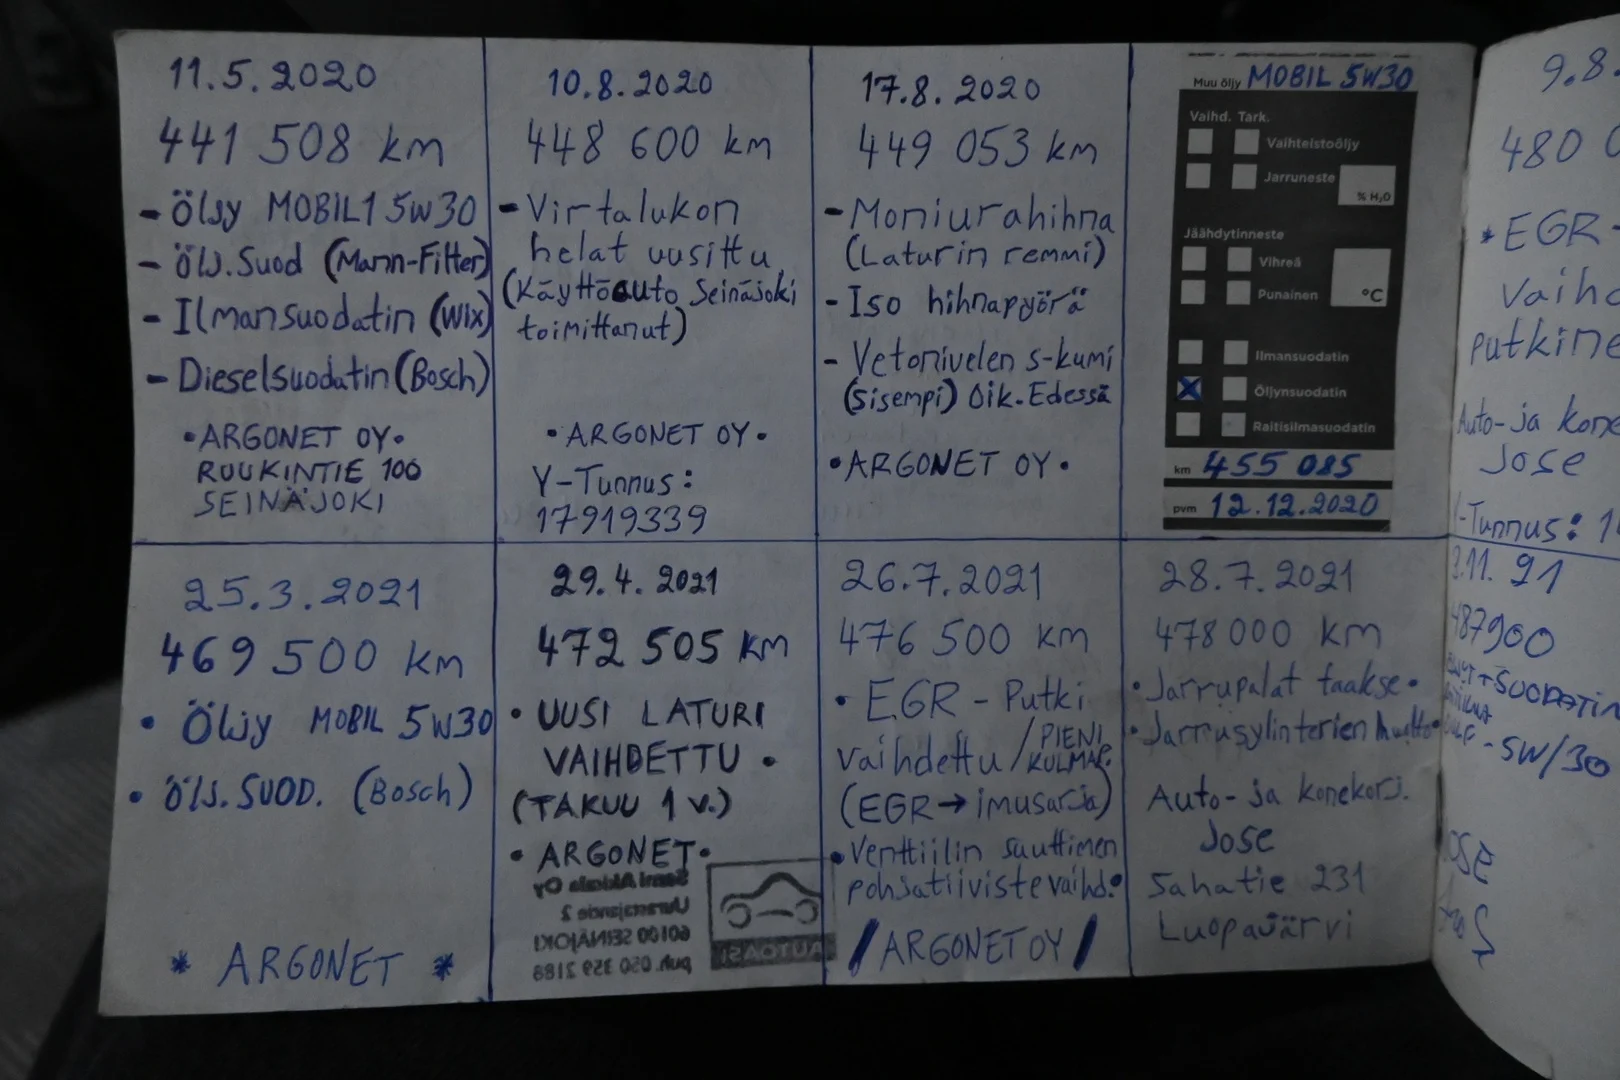 11.5.2020
441 508 km
- Öljy MOBIL1 5W30
- Ölj.Suod (Mann-Filter)
- Ilmansuodatin (Wix)
- Dieselsuodatin (Bosch)
•ARGONET OY•
RUUKINTIE 100
SEINÄJOKI
10.8.2020
448 600 km
- Virtalukon
helat uusittu
(Käyttöauto Seinäjoki
toimittanut)
• ARGONET OY•
Y-Tunnus:
17919339
17.8.2020
449 053 km
- Moniurahihna
(Laturin remmi)
- Iso hihnapyörä
- Vetonivelen s-kumi
(sisempi) Oik.Edessä
•ARGONET OY•
Muu öljy MOBIL 5W30
Vaihd. Tark.
Vaihteistoöljy
Jarruneste
% H₂O
Jäähdytinneste
Vihreä
Punainen
°C
Ilmansuodatin
X Öljynsuodatin
Raitisilmasuodatin
km 455 085
pvm 12.12.2020
25.3.2021
469 500 km
• Öljy MOBIL 5W30
• ÖlJ.SUOD. (Bosch)
* ARGONET *
29.4.2021
472 505 km
• UUSI LATURI
VAIHDETTU •
(TAKUU 1 v.)
• ARGONET•
Sami Akkala Oy
60100 SEINÄJOKI
puh. 050 359 2188
AUTOASI
26.7.2021
476 500 km
• EGR - Putki
vaihdettu / PIENI
KULMAP.
(EGR→imusarja)
•Venttiilin suuttimen
pohjatiiviste vaihd.•
/ARGONET OY/
28.7.2021
478 000 km
•Jarrupalat taakse•
•Jarrusylinterien huolto•
Auto- ja konekorj.
Jose
Sahatie 231
Luopajärvi
9.8.
480 0
* EGR -
Vaihd
putkine
Auto- ja kone
Jose
Y-Tunnus: 1
3.11. 21
487900
+SUODATIN
- 5W/30
JOSE